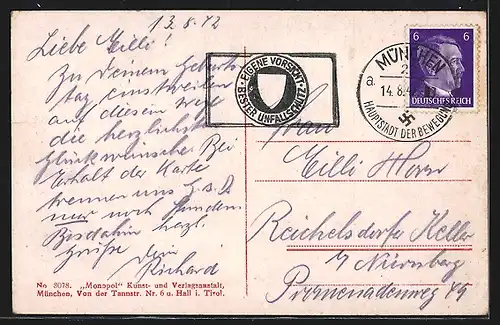 13.8.42
Liebe Cilli!
Zu Deinem Geburts-
tag einstweilen
auf diesem Weg
die herzlichsten
Glückwünsche. Bei
Erhalt der Karte
trennen uns G.s.D.
nur noch Stunden
Bis dahin herzl.
Grüße Dein
Richard
No 3078. „Monopol" Kunst- und Verlagsanstalt,
München, Von der Tannstr. Nr. 6 u. Hall i. Tirol.
EIGENE VORSICHT
BESTER UNFALLSCHUTZ
MÜNCHEN
2
a
14.8.42
HAUPTSTADT DER BEWEGUNG
6 6
DEUTSCHES REICH
Frau
Cilli Horn
Reichelsdorfer Keller
b/ Nürnberg
Promenadenweg 49